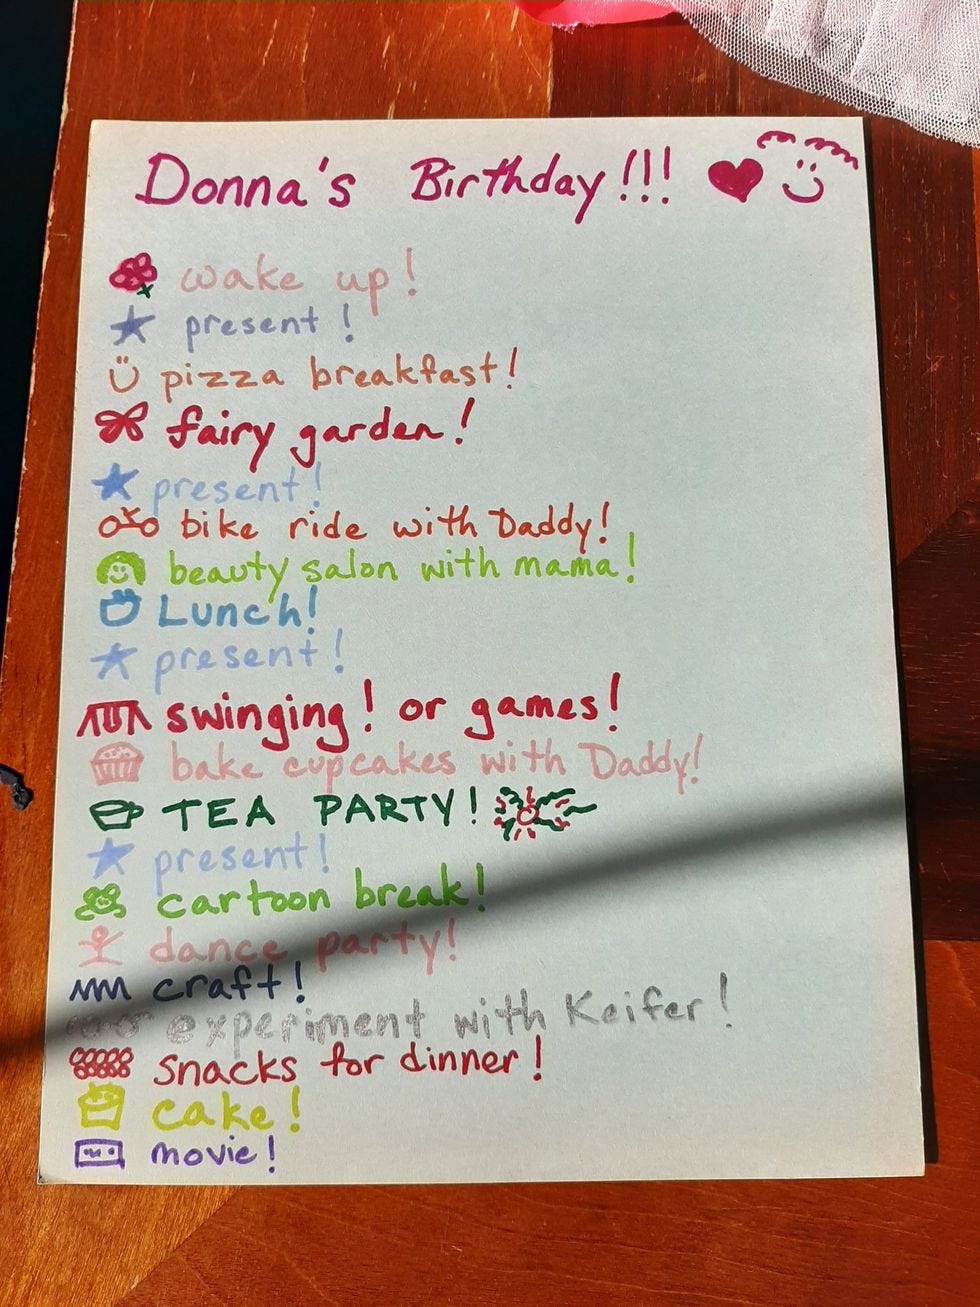 Donna's Birthday!!!
wake up!
present!
pizza breakfast!
fairy garden!
present!
bike ride with Daddy!
beauty salon with mama!
Lunch!
present!
swinging! or games!
bake cupcakes with Daddy!
TEA PARTY!
present!
cartoon break!
dance party!
craft!
experiment with Keifer!
snacks for dinner!
cake!
movie!